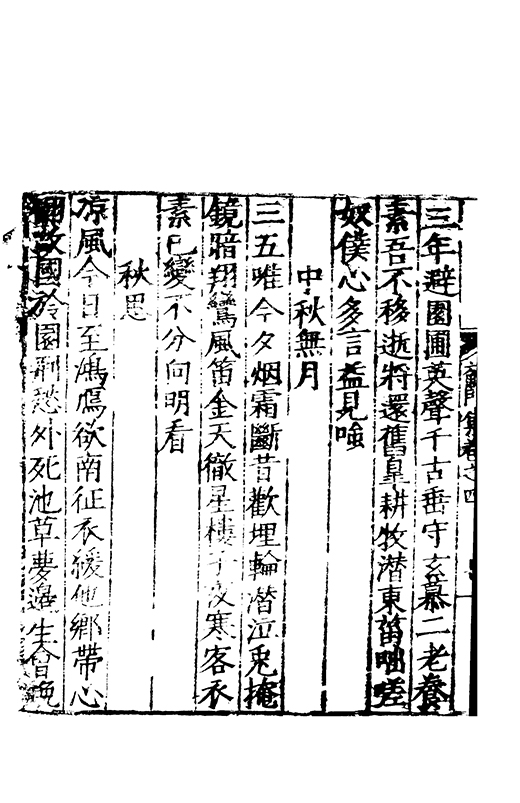 三年避園圃英聲千古垂守玄慕二老養
素吾不移逝將還舊皐耕牧潜東菑咄嗟
奴僕心多言益見嗤
中秋無月
三五唯今夕烟霜斷昔歡埋輪潜泣兎掩
鏡暗翔鸞風笛金天徹星樓子夜寒客衣
素已變不分向明看
秋思
凉風今日至鴻鴈欲南征衣緩他鄉帶心
故國於園荆愁外死池草夢邊生昏晚
集卷之四